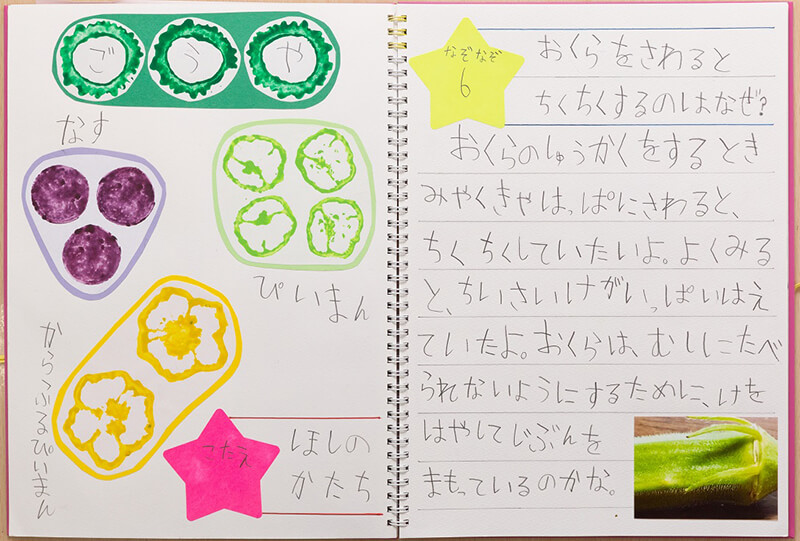 ごうや
なす
ぴいまん
からふるぴいまん
こたえ
ほしの
かたち
なぞなぞ
6
おくらをさわると
ちくちくするのはなぜ?
おくらのしゅうかくをするとき
みやくきやはっぱにさわると、
ちくちくしていたいよ。よくみる
と、ちいさいけがいっぱいはえ
ていたよ。おくらは、むしにたべ
られないようにするために、けを
はやしてじぶんを
まもっているのかな。